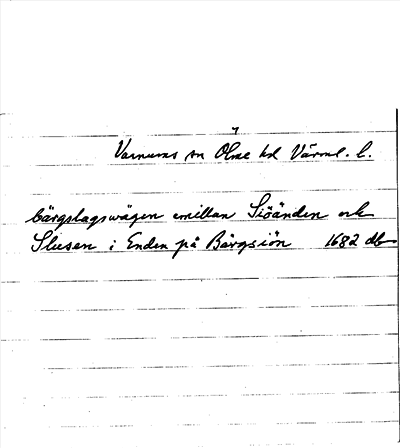 7
Varnums sn Ölme hd Värml. l.
bärgslagswägen emillan Siöänden och
Slusen i Enden på Bärgsiön 1682 db